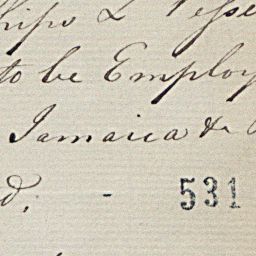 hips & Vesse
to be Employ
Jamaica &
d. - 531